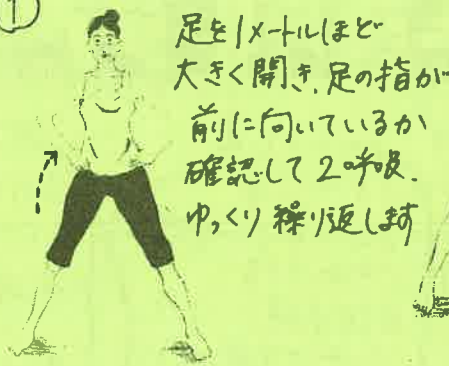 1
足を1メートルほど
大きく開き、足の指が
前に向いているか
確認して2呼吸.
ゆっくり繰り返します